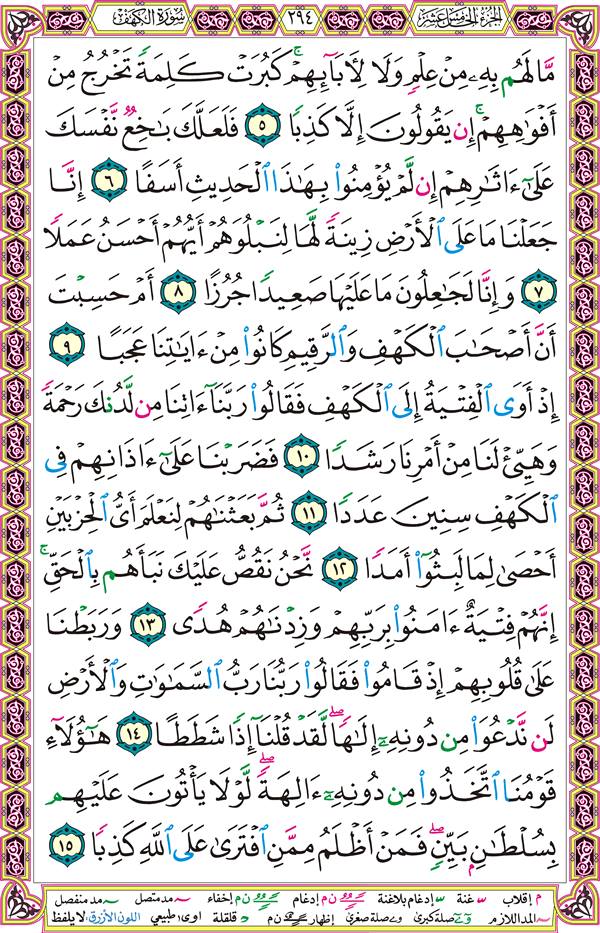 الجزء الخامس عشر ٢٩٤ سورة الكهف
مَّا لَهُم بِهِۦ مِنْ عِلْمٍۢ وَلَا لِـَٔابَآئِهِمْ ۚ كَبُرَتْ كَلِمَةًۭ تَخْرُجُ مِنْ
أَفْوَٰهِهِمْ ۚ إِن يَقُولُونَ إِلَّا كَذِبًۭا ٥ فَلَعَلَّكَ بَـٰخِعٌۭ نَّفْسَكَ
عَلَىٰٓ ءَاثَـٰرِهِمْ إِن لَّمْ يُؤْمِنُوا۟ بِهَـٰذَا ٱلْحَدِيثِ أَسَفًا ٦ إِنَّا
جَعَلْنَا مَا عَلَى ٱلْأَرْضِ زِينَةًۭ لَّهَا لِنَبْلُوَهُمْ أَيُّهُمْ أَحْسَنُ عَمَلًۭا
٧ وَإِنَّا لَجَـٰعِلُونَ مَا عَلَيْهَا صَعِيدًۭا جُرُزًا ٨ أَمْ حَسِبْتَ
أَنَّ أَصْحَـٰبَ ٱلْكَهْفِ وَٱلرَّقِيمِ كَانُوا۟ مِنْ ءَايَـٰتِنَا عَجَبًا ٩
إِذْ أَوَى ٱلْفِتْيَةُ إِلَى ٱلْكَهْفِ فَقَالُوا۟ رَبَّنَآ ءَاتِنَا مِن لَّدُنكَ رَحْمَةًۭ
وَهَيِّئْ لَنَا مِنْ أَمْرِنَا رَشَدًۭا ١٠ فَضَرَبْنَا عَلَىٰٓ ءَاذَانِهِمْ فِى
ٱلْكَهْفِ سِنِينَ عَدَدًۭا ١١ ثُمَّ بَعَثْنَـٰهُمْ لِنَعْلَمَ أَىُّ ٱلْحِزْبَيْنِ
أَحْصَىٰ لِمَا لَبِثُوٓا۟ أَمَدًۭا ١٢ نَّحْنُ نَقُصُّ عَلَيْكَ نَبَأَهُم بِٱلْحَقِّ ۚ
إِنَّهُمْ فِتْيَةٌ ءَامَنُوا۟ بِرَبِّهِمْ وَزِدْنَـٰهُمْ هُدًۭى ١٣ وَرَبَطْنَا
عَلَىٰ قُلُوبِهِمْ إِذْ قَامُوا۟ فَقَالُوا۟ رَبُّنَا رَبُّ ٱلسَّمَـٰوَٰتِ وَٱلْأَرْضِ
لَن نَّدْعُوَا۟ مِن دُونِهِۦٓ إِلَـٰهًۭا ۖ لَّقَدْ قُلْنَآ إِذًۭا شَطَطًا ١٤ هَـٰٓؤُلَآءِ
قَوْمُنَا ٱتَّخَذُوا۟ مِن دُونِهِۦٓ ءَالِهَةًۭ ۖ لَّوْلَا يَأْتُونَ عَلَيْهِم
بِسُلْطَـٰنٍۭ بَيِّنٍۢ ۖ فَمَنْ أَظْلَمُ مِمَّنِ ٱفْتَرَىٰ عَلَى ٱللَّهِ كَذِبًۭا ١٥
م إقلاب غنة إدغام بلاغنة ن م إدغام ن م إخفاء مد متصل مد منفصل
المد اللازم صلة كبرى صلة صغرى إظهار ن م قلقلة اوى طبيعي اللون الأزرق: لا يلفظ